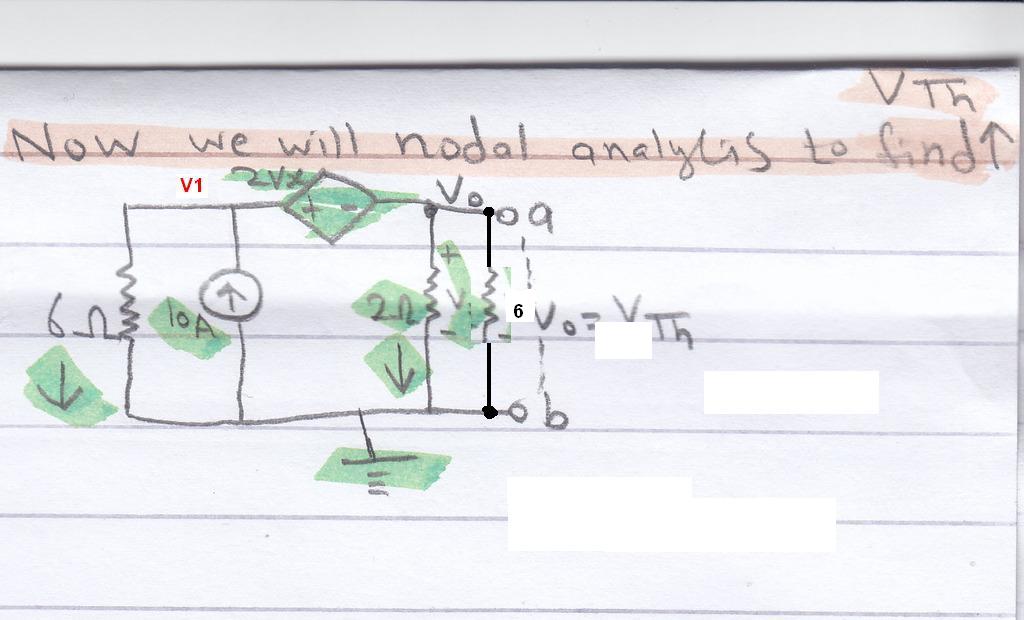 VTh
Now we will nodal analysis to find↑
V1
2Vx
Vo
a
+ -
+
6Ω
10A
2Ω
V
6
Vo = VTh
-
b